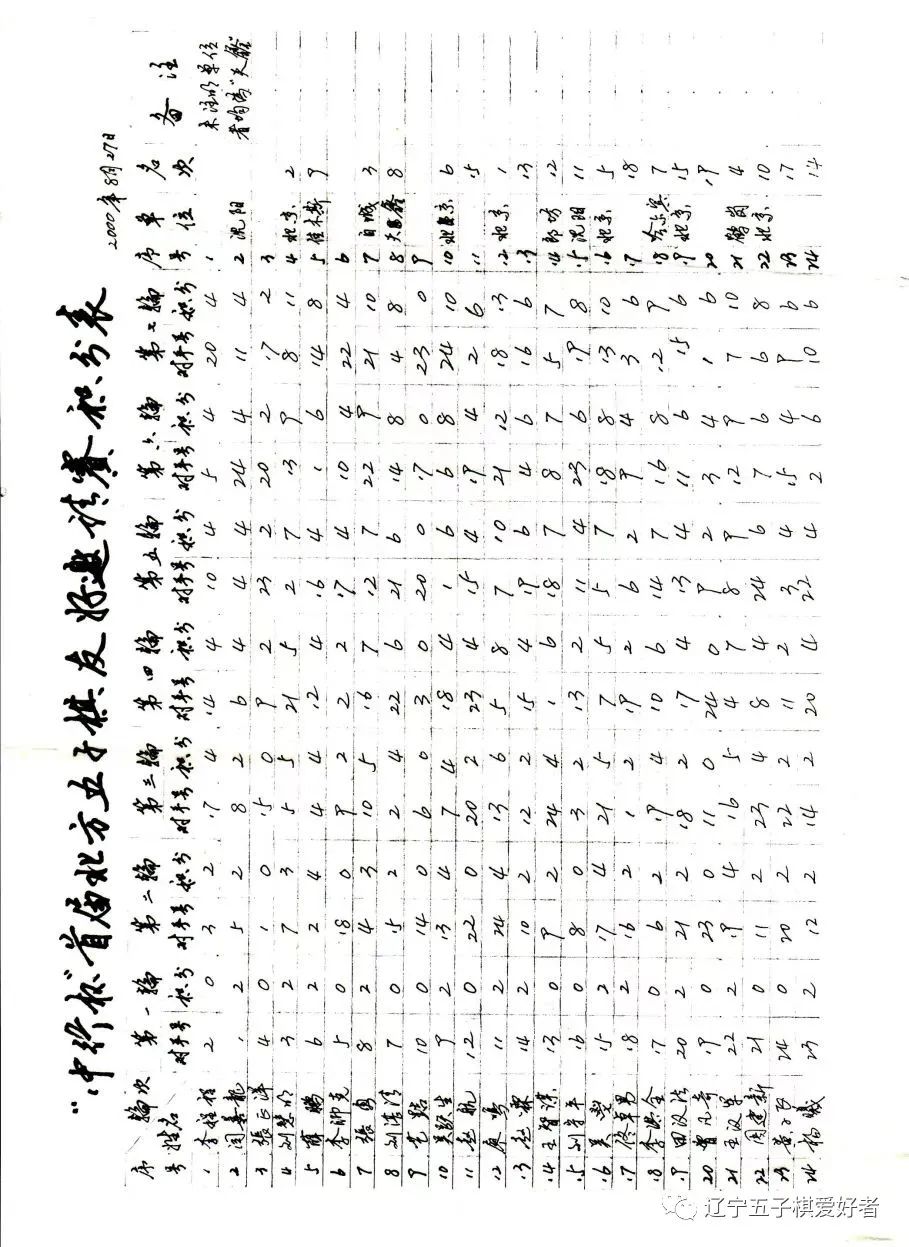 "中行杯"首届北方五子棋友好邀请賽积分表
2000年8月27日
序号 轮次 姓名 第一轮 第二轮 第三轮 第四轮 第五轮 第六轮 第七轮 序号 单位 名次 备注
对手号 积分 对手号 积分 对手号 积分 对手号 积分 对手号 积分 对手号 积分 对手号 积分
未注明单位
者均为"大
1 李 2 0 3 2 17 4 14 4 10 4 5 4 20 4 1
2 1 2 5 2 8 2 6 4 4 4 24 4 11 4 2 沈阳
3 张 洋 4 0 1 0 15 0 9 2 23 2 20 2 17 2 3
4 刘慧明 3 2 7 3 5 5 21 5 2 7 13 9 8 11 4 北京 2
5 鹏 6 2 2 4 4 4 12 4 16 4 1 6 14 8 5 佳木斯 9
6 李沛克 5 0 18 0 9 2 2 2 17 4 10 4 22 4 6
7 张勇 8 2 4 3 10 5 16 7 12 7 22 9 21 10 7 白城 3
8 刘 7 0 15 2 2 4 22 6 21 6 14 8 4 8 8 8
9 10 0 14 0 6 0 3 0 20 0 17 0 23 0 9
10 吴 生 9 2 13 4 7 4 18 4 1 6 6 8 24 10 10 北京 6
11 赵航 12 0 22 0 20 2 23 4 15 4 19 4 2 6 11 15
12 11 2 24 4 13 6 5 8 7 10 21 12 18 13 12 北京 1
13 赵霖 14 2 10 2 12 2 15 4 19 6 4 6 16 6 13 13
14 王智谋 13 0 9 2 24 4 1 6 18 7 8 7 5 7 14 廊坊 12
15 刘学平 16 0 8 0 3 2 13 2 11 4 23 6 19 8 15 沈阳 11
16 吴 15 2 17 4 21 5 7 5 5 7 18 8 13 10 16 北京 5
17 佟 男 18 2 16 2 1 2 19 2 6 2 9 4 3 6 17 18
18 李洪全 17 0 6 2 19 4 10 6 14 7 16 8 12 9 18 哈尔滨 7
19 田汉 20 2 21 2 18 2 17 4 13 4 11 6 15 6 19 北京 15
20 曹元奇 19 0 23 0 11 0 24 0 9 2 3 4 1 6 20 19
21 王汉 22 2 19 4 16 5 4 7 8 9 12 9 7 10 21 鹤岗 4
22 周建新 21 0 11 2 23 4 8 4 24 6 7 6 6 8 22 北京 10
23 24 0 20 2 22 2 11 2 3 4 15 4 9 6 23 17
24 杨 23 2 12 2 14 2 20 4 22 4 2 6 10 6 24 14
辽宁五子棋爱好者